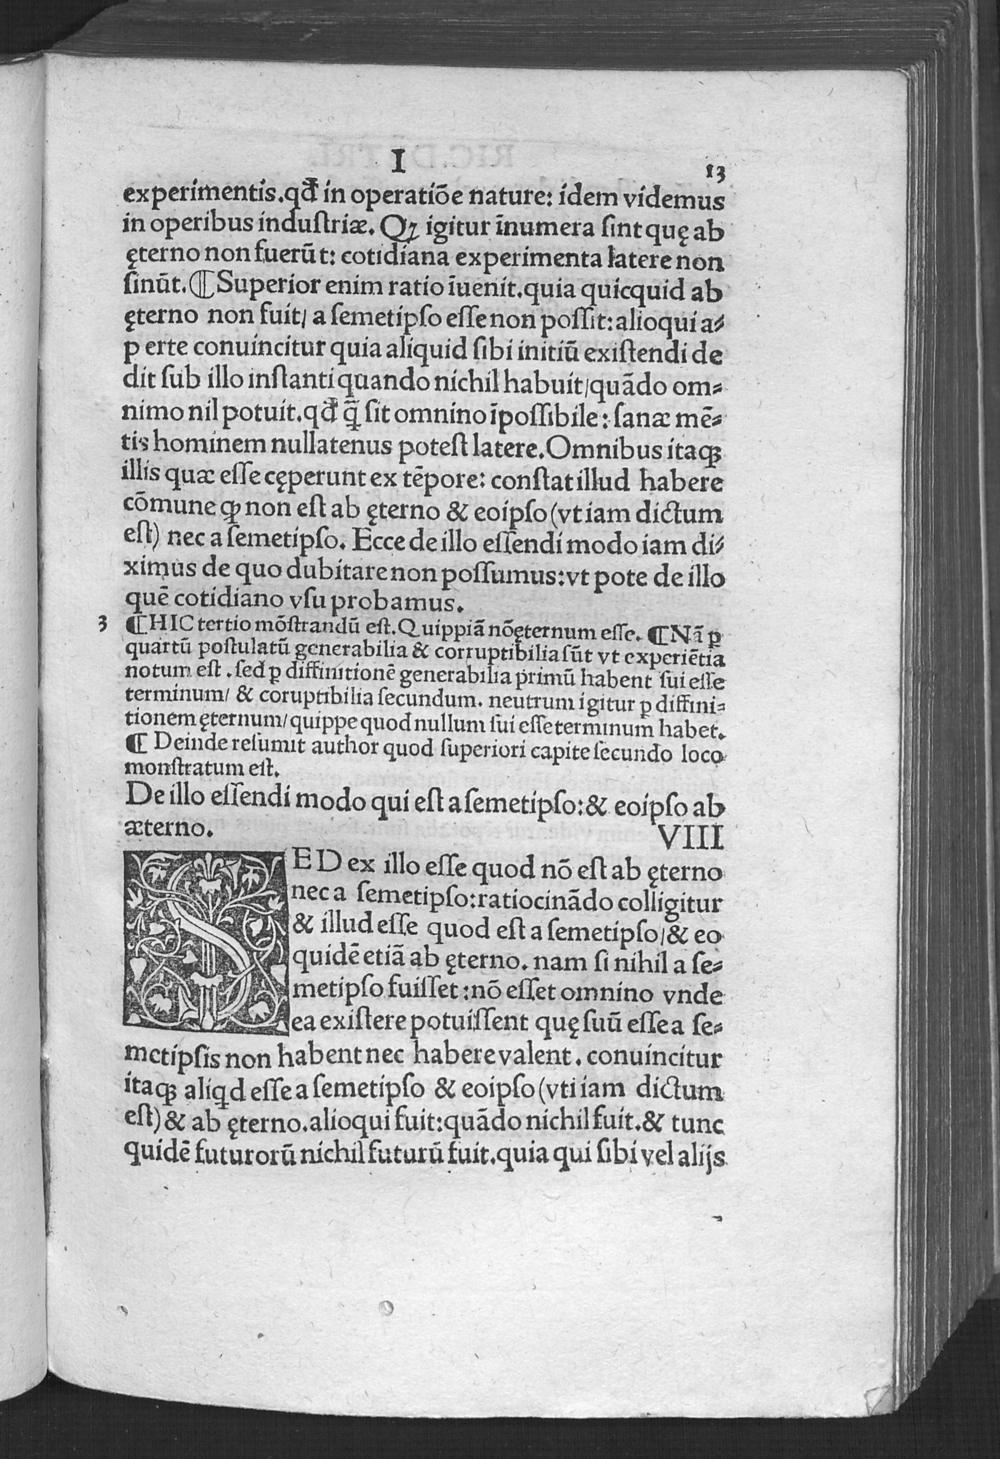 I
13
experimentis.qđ in operatiõe nature: idem videmus
in operibus industriæ. Qꝫ igitur īnumera sint quę ab
ęterno non fuerūt: cotidiana experimenta latere non
sinūt.¶Superior enim ratio īuenit.quia quicquid ab
ęterno non fuit/ a semetipso esse non possit:alioqui a⸗
perte conuincitur quia aliquid sibi initiū existendi de
dit sub illo instanti quando nichil habuit/quãdo om⸗
nimo nil potuit.qđ q̃ sit omnino īpossibile: sanæ mẽ⸗
tis hominem nullatenus potest latere.Omnibus itaqꝫ
illis quæ esse cęperunt ex tẽpore: constat illud habere
cõmune ꝙ non est ab ęterno & eoipso (vt iam dictum
est) nec a semetipso. Ecce de illo essendi modo iam di⸗
ximus de quo dubitare non possumus:vt pote de illo
quẽ cotidiano vsu probamus.
3 ¶HIC tertio mõstrandū est.Quippiã nõęternum esse. ¶Nã ꝑ
quartū postulatū generabilia & corruptibilia sūt vt experiẽtia
notum est . sed ꝑ diffinitionẽ generabilia primū habent sui esse
terminum/ & coruptibilia secundum. neutrum igitur ꝑ diffini⸗
tionem ęternum/quippe quod nullum sui esse terminum habet.
¶ Deinde resumit author quod superiori capite secundo loco
monstratum est.
De illo essendi modo qui est a semetipso:& eoipso ab
æterno. VIII
SED ex illo esse quod nõ est ab ęterno
nec a semetipso:ratiocinãdo colligitur
& illud esse quod est a semetipso/& eo
quidẽ etiã ab ęterno. nam si nihil a se⸗
metipso fuisset :nõ esset omnino vnde
ea existere potuissent quę suū esse a se⸗
metipsis non habent nec habere valent . conuincitur
itaqꝫ aliqd esse a semetipso & eoipso (vti iam dictum
est) & ab ęterno.alioqui fuit:quãdo nichil fuit.& tunc
quidẽ futurorū nichil futurū fuit.quia qui sibi vel alijs